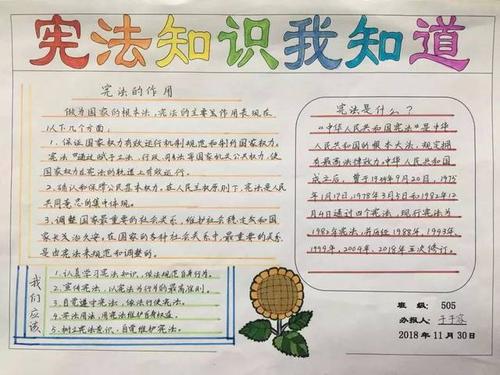 宪法知识我知道
宪法的作用
做为国家的根本法,宪法的主要发作用表现在
以下几个方面:
1、保证国家权力有效运行机制规范和制约国家权力。
宪法"通过赋予立法、行政、司法等国家机关公共权力,使
国家权力在宪法的轨道上有效运行。
2、确认和保障公民基本权力,在人民主权原则下,宪法是人民
共同意志的集中体现。
3、调整国家最重要的社会关系,维护社会稳定大和国
家长发治久安。在国家的各种社会关系中,最重要的关系
是由宪法来规范和调整的。
我们应该
1、认真学习宪法知识,依法规范自身行为。
2、宣传宪法,以宪法为行为的最高准则。
3、自觉遵守宪法,依法行使宪法。
4、学法用法,用宪法维护自身权益。
5、树立宪法意识,自觉维护宪法。
宪法是什么?
《中华人民共和国宪法》是中
华人民共和国的根本大法,规定拥
有最高法律效力。中华人民共和国
成立后,曾于1954年9月20日、1975
年1月17日、1978年3月5日和1982年12
月4日通过四个宪法,现行宪法为
1982年宪法,并历经1988年、1993年、
1999年、2004年、2018年五次修订。
班 级: 505
办报人:
2018年11月30日